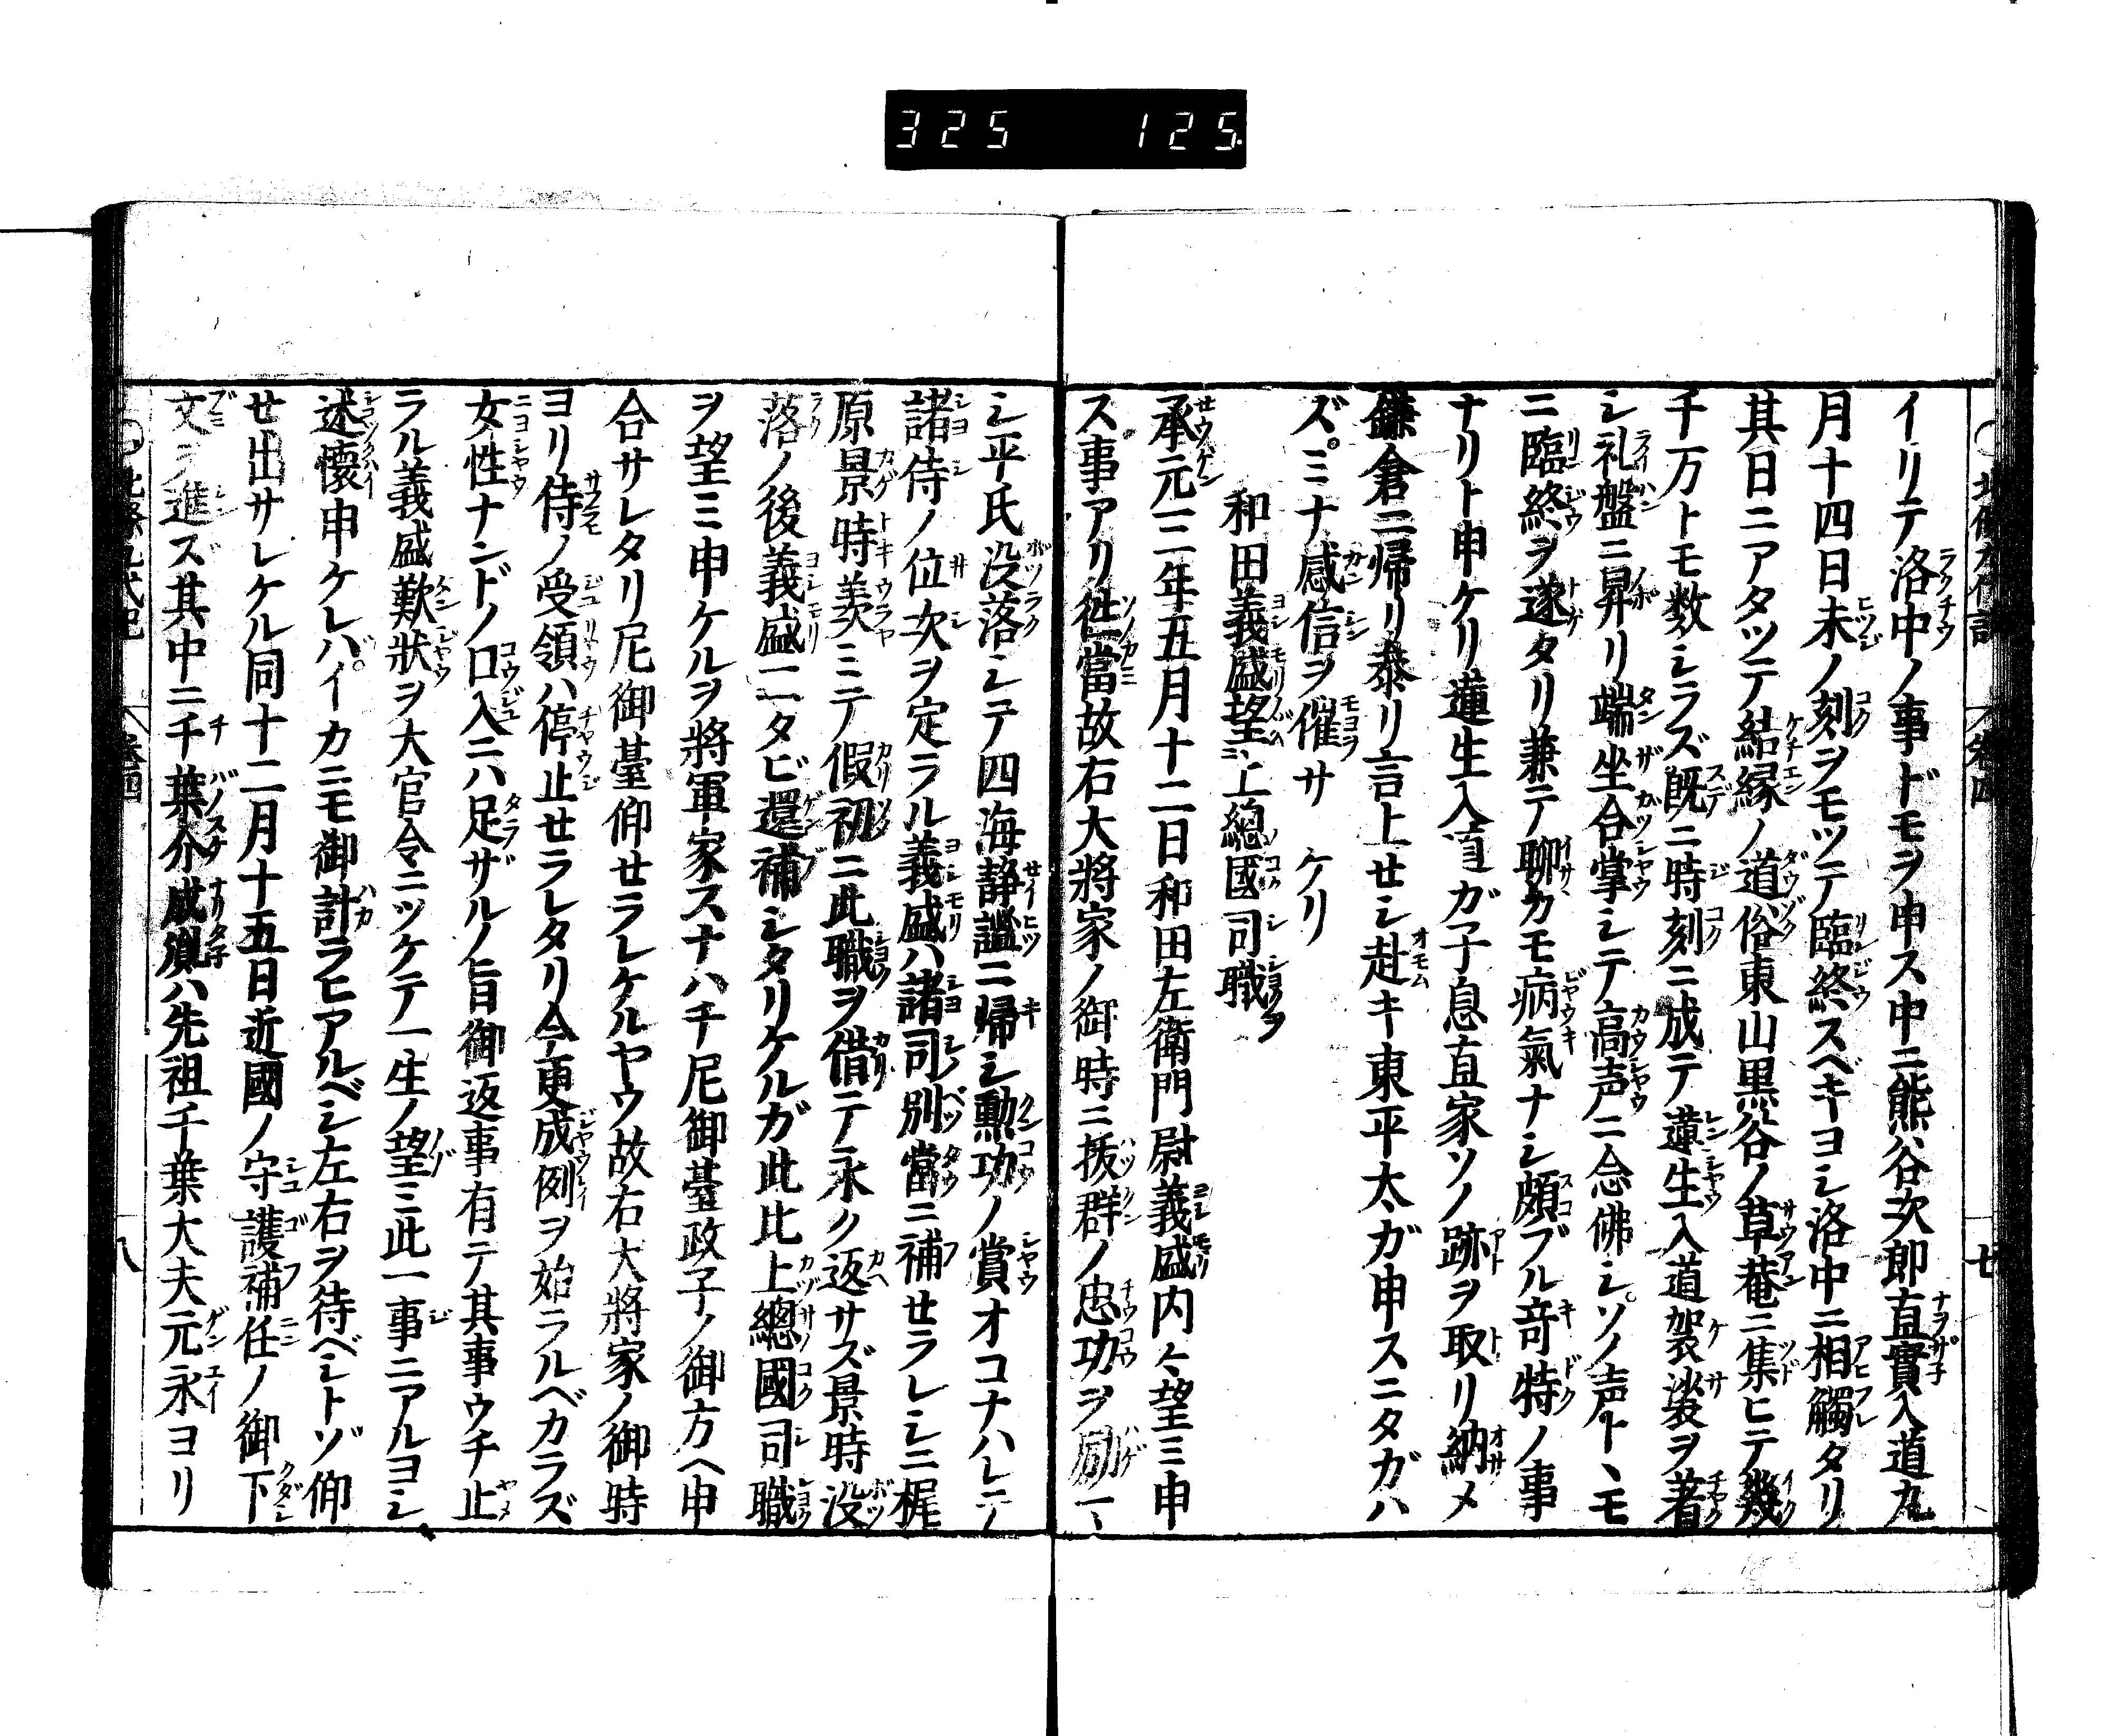 325 125.
イリテ洛中ノ事ドモヲ申ス中ニ熊谷次郎直實入道九
月十四日未ノ刻ヲモツテ臨終スベキヨシ洛中ニ相觸タリ
其日ニアタツテ結縁ノ道俗東山黒谷ノ草菴ニ集ヒテ幾
千万トモ数シラズ既ニ時刻ニ成テ蓮生入道袈裟ヲ着
シ礼盤ニ昇リ端坐合掌シテ高声ニ念佛シソノ声トヽモ
ニ臨終ヲ遂タリ兼テ聊カモ病氣ナシ頗ブル竒特ノ事
ナリト申ケリ蓮生入道ガ子息直家ソノ跡ヲ取リ納メ
鎌倉ニ帰リ泰リ言上セシ赴キ東平太ガ申スニタガハ
ズミナ感信ヲ催サケリ
和田義盛望ミ上總國司職ヲ
承元三年五月十二日和田左衛門尉義盛内々望ミ申
ス事アリ徃當故右大將家ノ御時ニ拔群ノ忠功ヲ励マ
シ平氏没落シテ四海静謐ニ帰シ勲功ノ賞オコナハレテ
諸侍ノ位次ヲ定ラル義盛ハ諸司別當ニ補セラレシニ梶
原景時羨ミテ假初ニ此職ヲ借テ永ク返サズ景時没
落ノ後義盛二タビ還補シタリケルガ此比上總國司職
ヲ望ミ申ケルヲ將軍家スナハチ尼御臺政子ノ御方ヘ申
合サレタリ尼御臺仰セラレケルヤウ故右大將家ノ御時
ヨリ侍ノ受領ハ停止セラレタリ今更成例ヲ始ラルベカラズ
女性ナンドノ口入ニハ足ザルノ旨御返事有テ其事ウチ止
ラル義盛歎狀ヲ大官令ニツケテ一生ノ望ミ此一事ニアルヨシ
述懷申ケレバイカニモ御計ラヒアルベシ左右ヲ待ベシトゾ仰
せ出サレケル同十二月十五日近國ノ守護補任ノ御下
文ヲ進ズ其中ニ千葉介成胤ハ先祖千葉大夫元永ヨリ
北條九代記 巻四 八